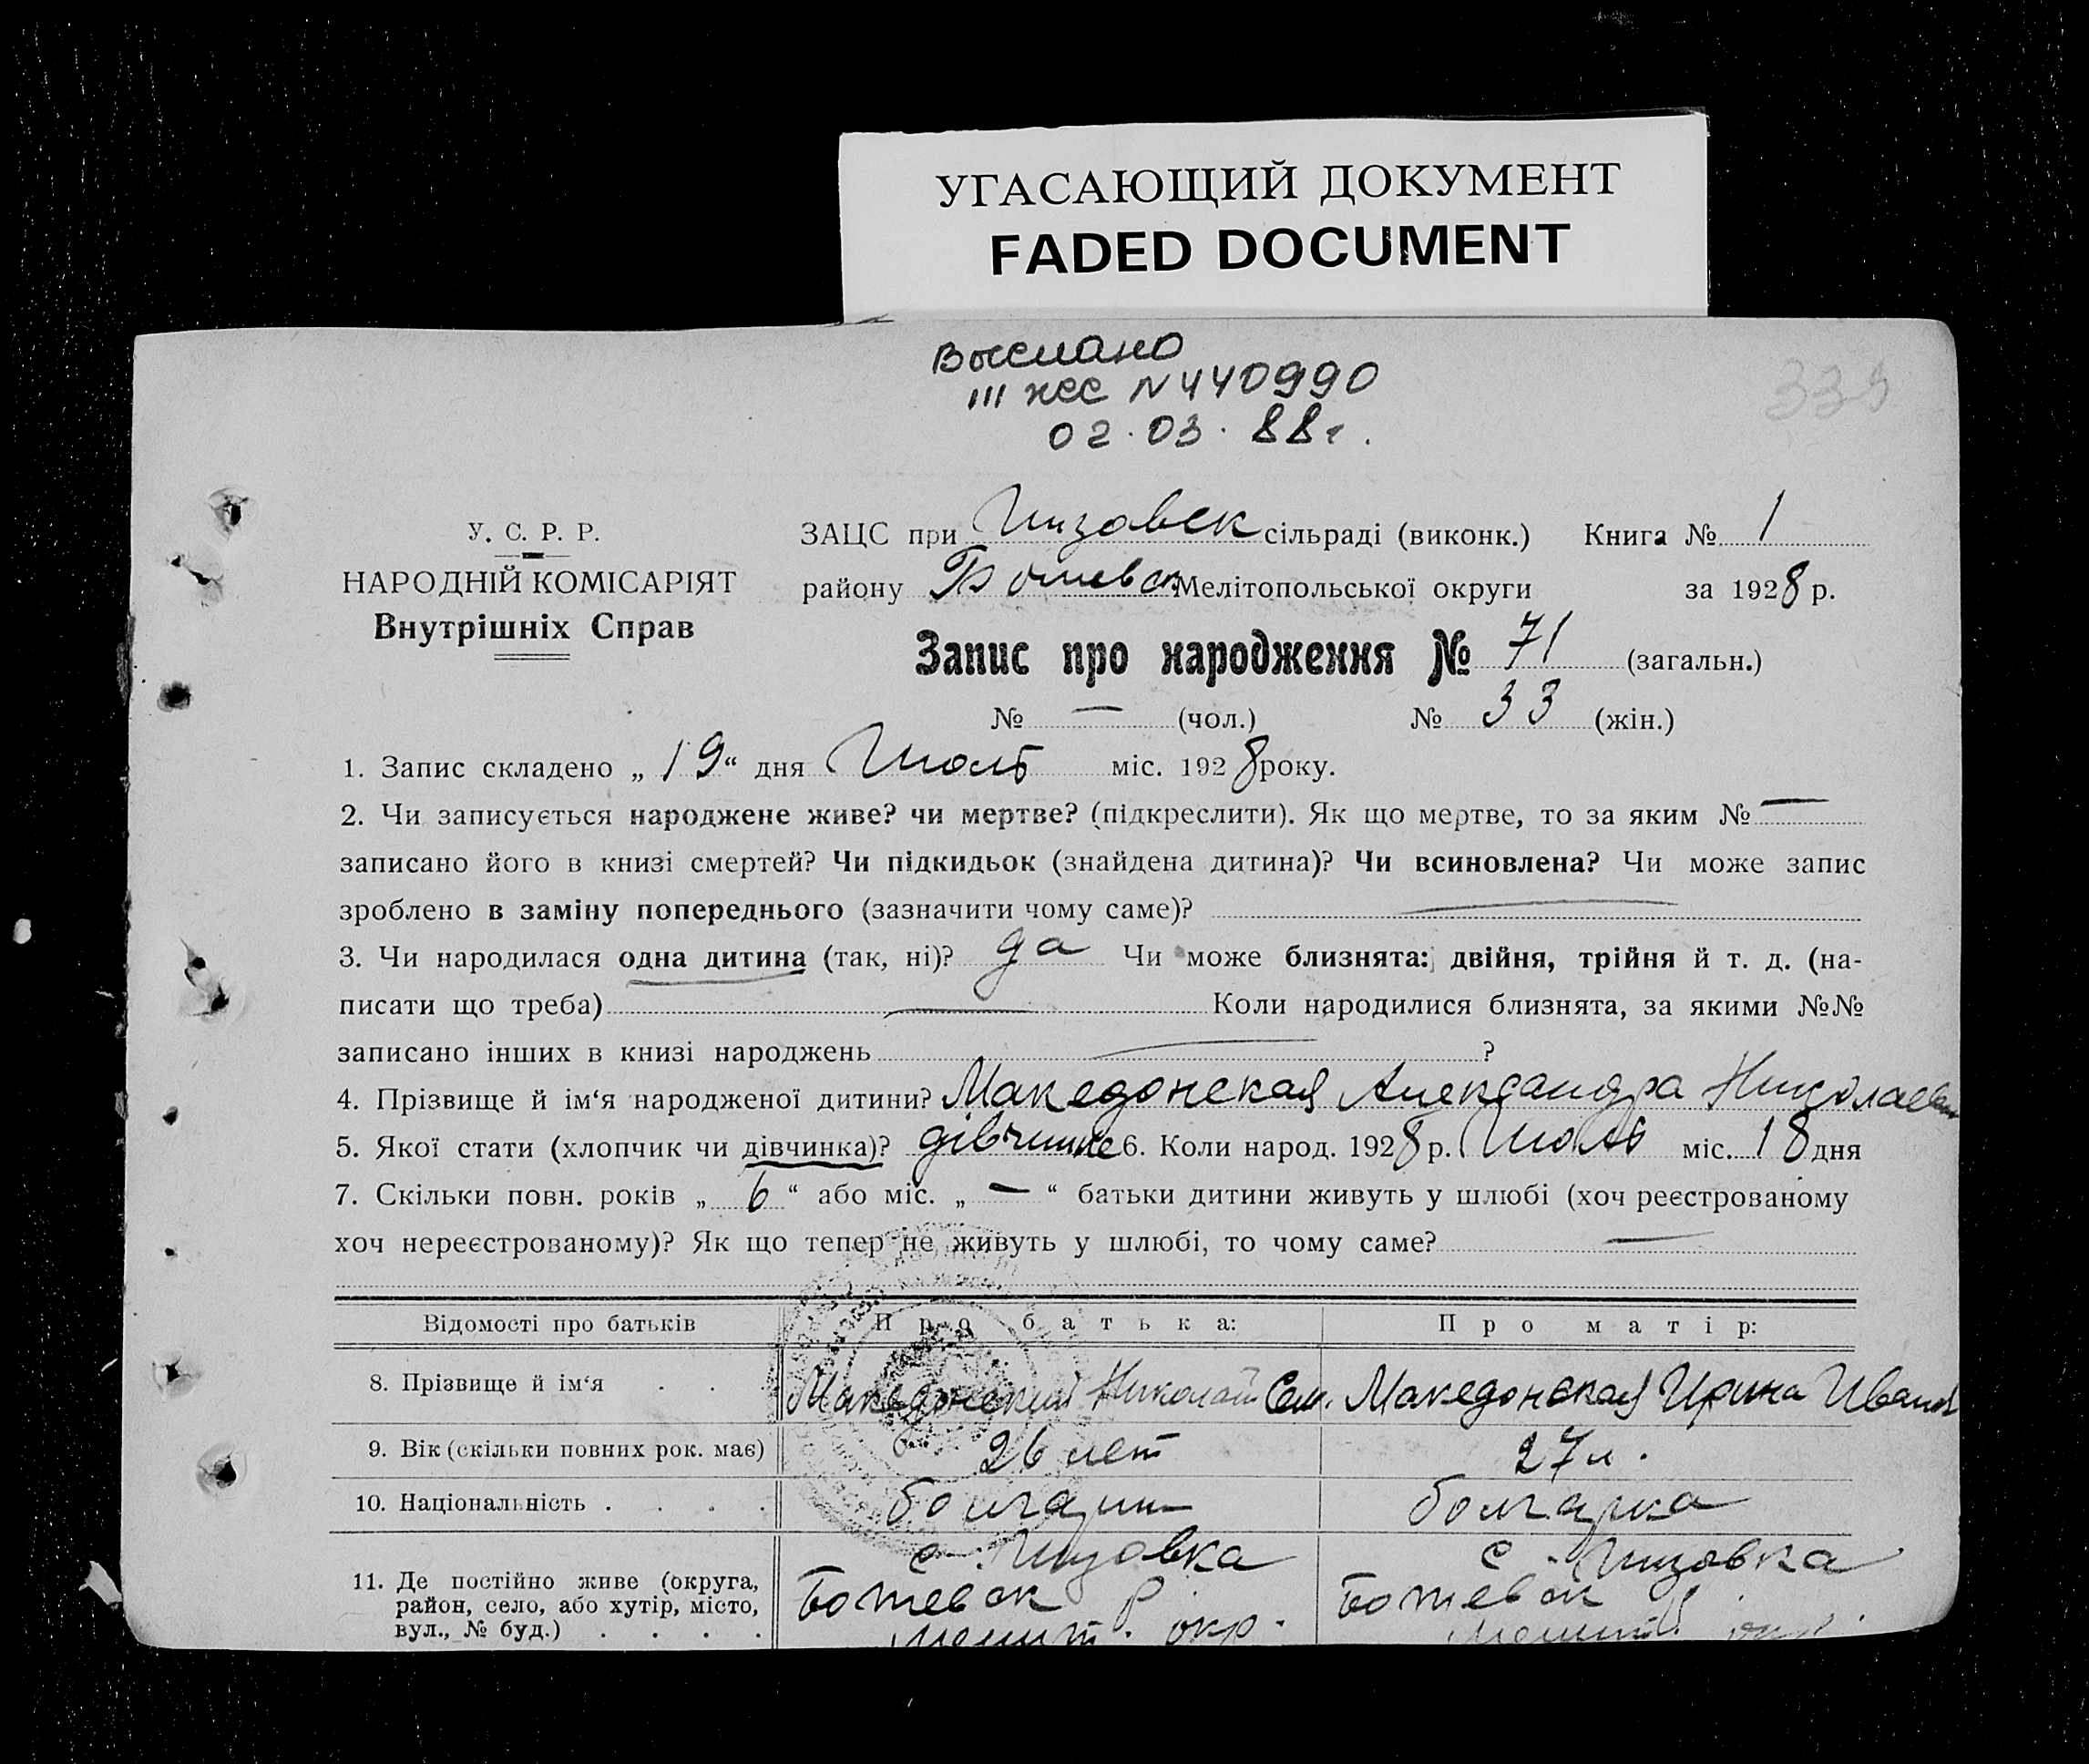 УГАСАЮЩИЙ ДОКУМЕНТ
FADED DOCUMENT
Выслано
III жс N 440990
02.03.88г.
У. С. Р. Р.
НАРОДНІЙ КОМІСАРІЯТ
Внутрішніх Справ
ЗАЦС при Инзовск сільраді (виконк.) Книга № 1
району Ботевск Мелітопольської округи за 1928 р.
Запис про народження № 71 (загальн.)
№ — (чол.) № 33 (жін.)
1. Запис складено „ 19 “ дня Июль міс. 1928 року.
2. Чи записується народжене живе? чи мертве? (підкреслити). Як що мертве, то за яким № —
записано його в книзі смертей? Чи підкидьок (знайдена дитина)? Чи всиновлена? Чи може запис
зроблено в заміну попереднього (зазначити чому саме)? —
3. Чи народилася одна дитина (так, ні)? да Чи може близнята: двійня, трійня й т. д. (на-
писати що треба) — Коли народилися близнята, за якими №№
записано інших в книзі народжень — ?
4. Прізвище й ім‘я народженої дитини? Македонская Александра Николаевн
5. Якої стати (хлопчик чи дівчинка)? дівчинке 6. Коли народ. 1928 р. Июль міс. 18 дня
7. Скільки повн. років „ 6 “ або міс. „ — “ батьки дитини живуть у шлюбі (хоч реєстрованому
хоч нереєстрованому)? Як що тепер не живуть у шлюбі, то чому саме? —
Відомості про батьків Про батька: Про матір:
8. Прізвище й ім‘я . . . Македонский Николай Сем. Македонская Ирина Иванов
9. Вік (скільки повних рок. має) 26 лет 27 л.
10. Національність . . . . болгарин болгарка
11. Де постійно живе (округа, район, село, або хутір, місто, вул., № буд.) . . . . с. Инзовка Ботевск р. Мелит. окр. с. Инзовка Ботевск р. Мелит. окр.